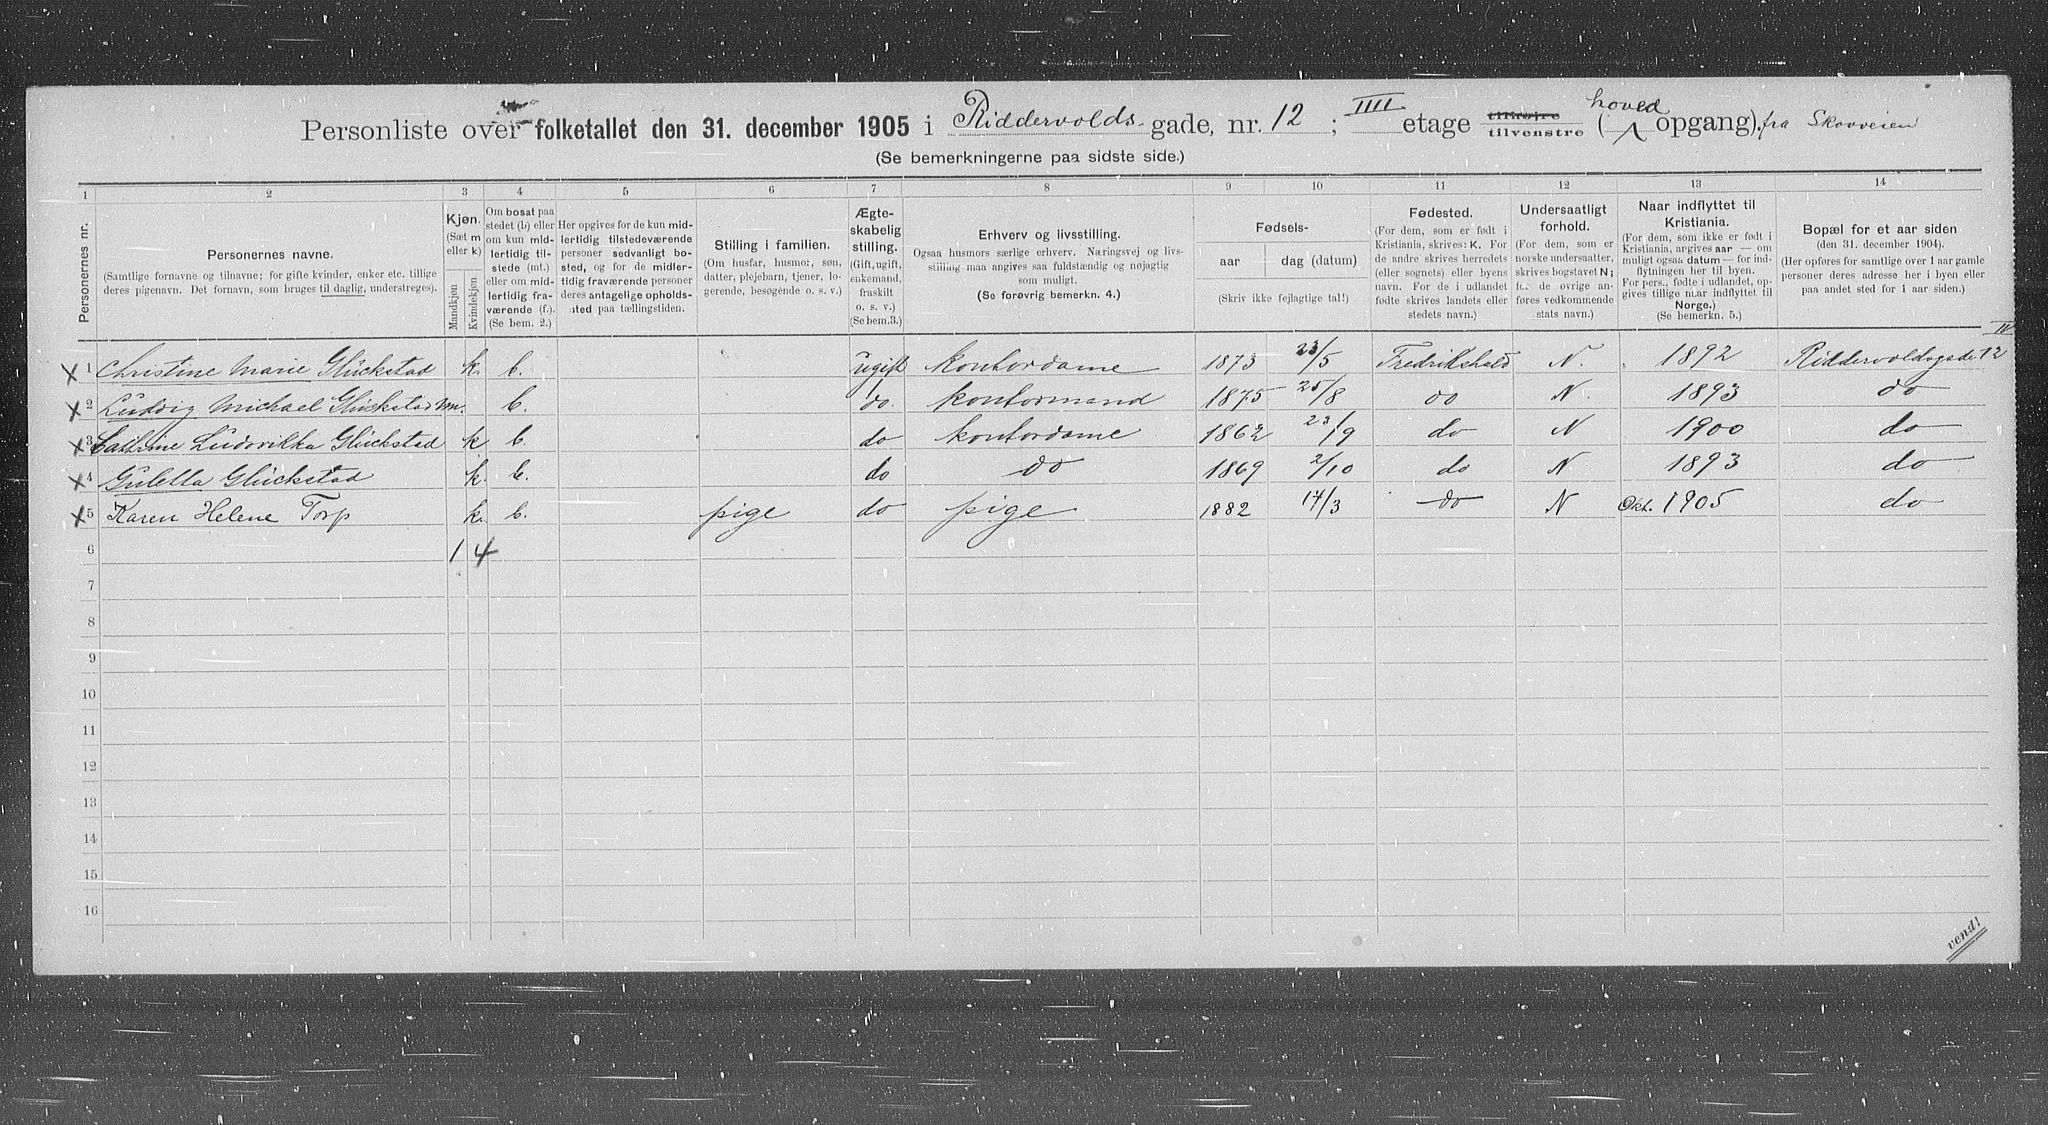 Personliste over folketallet den 31. december 1905 i Riddervolds gade, nr. 12 ; IIII etage tilhøjre tilvenstre (hoved opgang). fra Skovveien
(Se bemerkningerne paa sidste side.)
1 2 3 4 5 6 7 8 9 10 11 12 13 14
Personernes nr.
Personernes navne.
(Samtlige fornavne og tilnavne; for gifte kvinder, enker etc. tillige
deres pigenavn. Det fornavn, som bruges til daglig, understreges).
Kjøn.
(Sæt m
eller k).
Mandkjøn
Kvindekjøn
Om bosat paa
stedet (b) eller
om kun mid-
lertidig til-
stede (mt.)
eller om mid-
lertidig fra-
værende (f.).
(Se bem. 2.)
Her opgives for de kun mid-
lertidig tilstedeværende
personer sedvanligt bo-
sted, og for de midler-
tidig fraværende personer
deres antagelige opholds-
sted paa tællingstiden.
Stilling i familien.
(Om husfar, husmor, søn,
datter, plejebarn, tjener, lo-
gerende, besøgende o. s. v.)
Ægte-
skabelig
stilling.
(Gift, ugift,
enkemand,
fraskilt
o. s. v.)
(Se bem.3.)
Erhverv og livsstilling.
Ogsaa husmors særlige erhverv. Næringsvej og livs-
stilling maa angives saa fuldstændig og nøjagtig
som muligt.
(Se forøvrig bemerkn. 4.)
Fødsels-
aar dag (datum)
(Skriv ikke fejlagtige tal!)
Fødested.
(For dem, som er født i
Kristiania, skrives: K. For
de andre skrives herredets
(eller sognets) eller byens
navn. For de i udlandet
fødte skrives landets eller
stedets navn.)
Undersaatligt
forhold.
(For dem, som er
norske undersaatter,
skrives bogstavet N;
for de øvrige an-
føres vedkommende
stats navn.)
Naar indflyttet til
Kristiania.
(For dem, som ikke er født i
Kristiania, angives aar — om
muligt ogsaa datum — for ind-
flytningen her til byen.
For pers., fødte i udlandet, op-
gives tillige naar indflyttet til
Norge.)
(Se bemerkn. 5.)
Bopæl for et aar siden
(den 31. december 1904).
(Her opføres for samtlige over 1 aar gamle
personer deres adresse her i byen eller
paa andet sted for 1 aar siden.)
x 1 Christine Marie Glückstad k. b. ugift kontordame 1873 23/5 Fredrikshald N. 1892 Riddervoldsgade 12 IV
x 2 Ludvig Michael Glückstad m. b. do. kontormand 1875 25/8 do N. 1893 do
x 3 Cathrine Ludovikka Glückstad k b. do kontordame 1862 23/9 do N 1900 do
x 4 Guletta Glückstad k. b. do do 1869 2/10 do N 1893 do
x 5 Karen Helene Torp k. b. pige do pige 1882 17/3 do N Okt. 1905 do
6 1 4
7
8
9
10
11
12
13
14
15
16
vend!